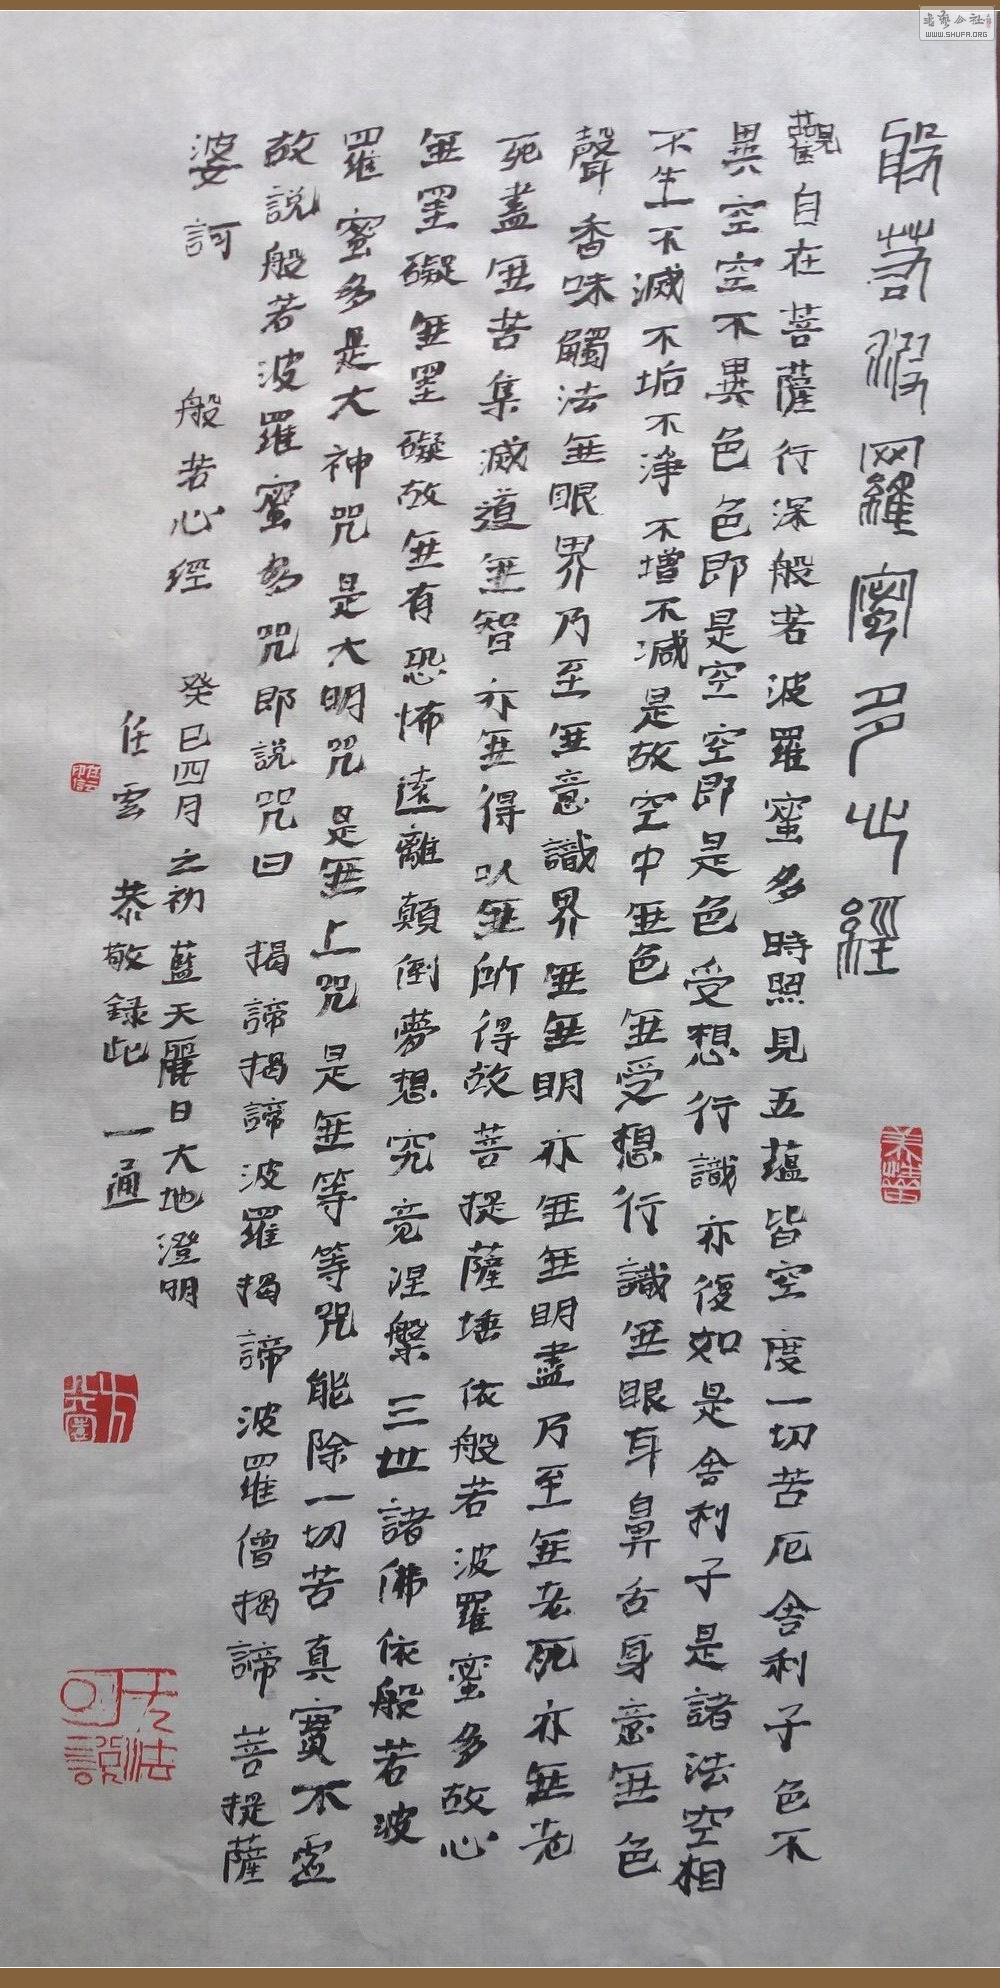 般若波羅蜜多心經
觀自在菩薩行深般若波羅蜜多時照見五蘊皆空度一切苦厄舍利子色不
異空空不異色色即是空空即是色受想行識亦復如是舍利子是諸法空相
不生不滅不垢不淨不增不減是故空中無色無受想行識無眼耳鼻舌身意無色
聲香味觸法無眼界乃至無意識界無無明亦無無明盡乃至無老死亦無老
死盡無苦集滅道無智亦無得以無所得故菩提薩埵依般若波羅蜜多故心
無罣礙無罣礙故無有恐怖遠離顛倒夢想究竟涅槃三世諸佛依般若波
羅蜜多是大神咒是大明咒是無上咒是無等等咒能除一切苦真實不虛
故說般若波羅蜜多咒即說咒曰 揭諦揭諦波羅揭諦波羅僧揭諦 菩提薩
婆訶 般若心經 癸巳四月之初藍天麗日大地澄明
任雲 恭敬録此一通
无法可說
WWW.SHUFA.ORG